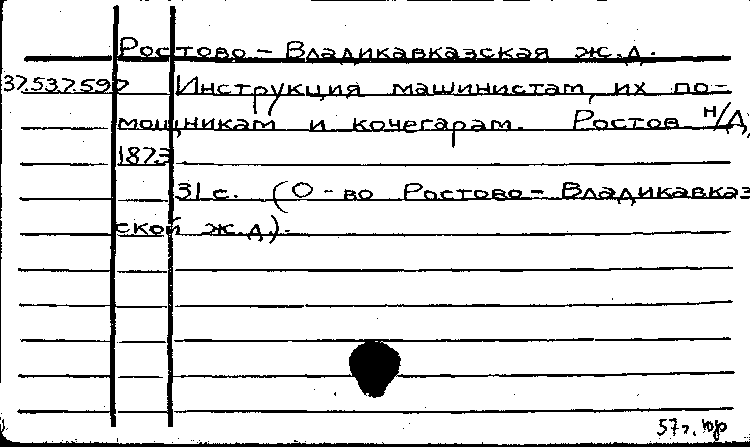 Ростово - Владикавказская ж.д.
37.537.597 Инструкция машинистам, их по-
мощникам и кочегарам. Ростов н/Д,
1873
31 с. (О-во Ростово - Владикавказ
ской ж.д.).
57г.